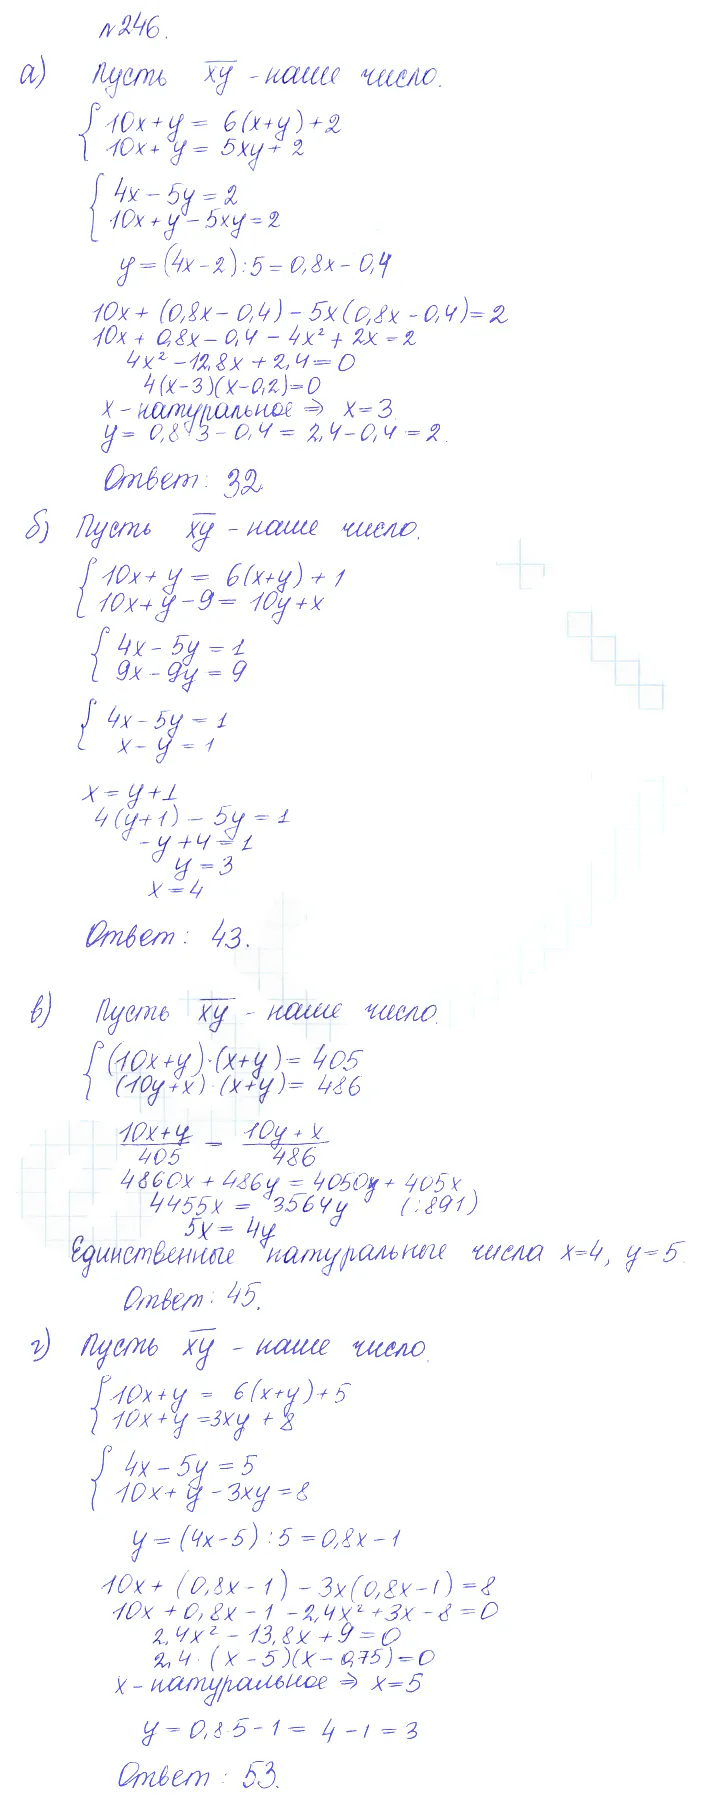 №246.
а) Пусть x̅y̅ - наше число.
{ 10x+y = 6(x+y)+2
10x+y = 5xy+2
{ 4x-5y=2
10x+y-5xy=2
y=(4x-2):5=0,8x-0,4
10x+(0,8x-0,4)-5x(0,8x-0,4)=2
10x+0,8x-0,4-4x²+2x=2
4x²-12,8x+2,4=0
4(x-3)(x-0,2)=0
x-натуральное ⇒ x=3
y=0,8·3-0,4=2,4-0,4=2.
Ответ: 32
б) Пусть x̅y̅ - наше число.
{ 10x+y = 6(x+y)+1
10x+y-9 = 10y+x
{ 4x-5y=1
9x-9y=9
{ 4x-5y=1
x-y=1
x=y+1
4(y+1)-5y=1
-y+4=1
y=3
x=4
Ответ: 43.
в) Пусть x̅y̅ - наше число.
{ (10x+y)·(x+y)=405
(10y+x)·(x+y)=486
(10x+y)/405 = (10y+x)/486
4860x+486y=4050y+405x
4455x=3564y (:891)
5x=4y
Единственные натуральные числа x=4, y=5.
Ответ: 45.
г) Пусть x̅y̅ - наше число.
{ 10x+y = 6(x+y)+5
10x+y=3xy+8
{ 4x-5y=5
10x+y-3xy=8
y=(4x-5):5=0,8x-1
10x+(0,8x-1)-3x(0,8x-1)=8
10x+0,8x-1-2,4x²+3x-8=0
2,4x²-13,8x+9=0
2,4·(x-5)(x-0,75)=0
x-натуральное ⇒ x=5
y=0,8·5-1=4-1=3
Ответ: 53.